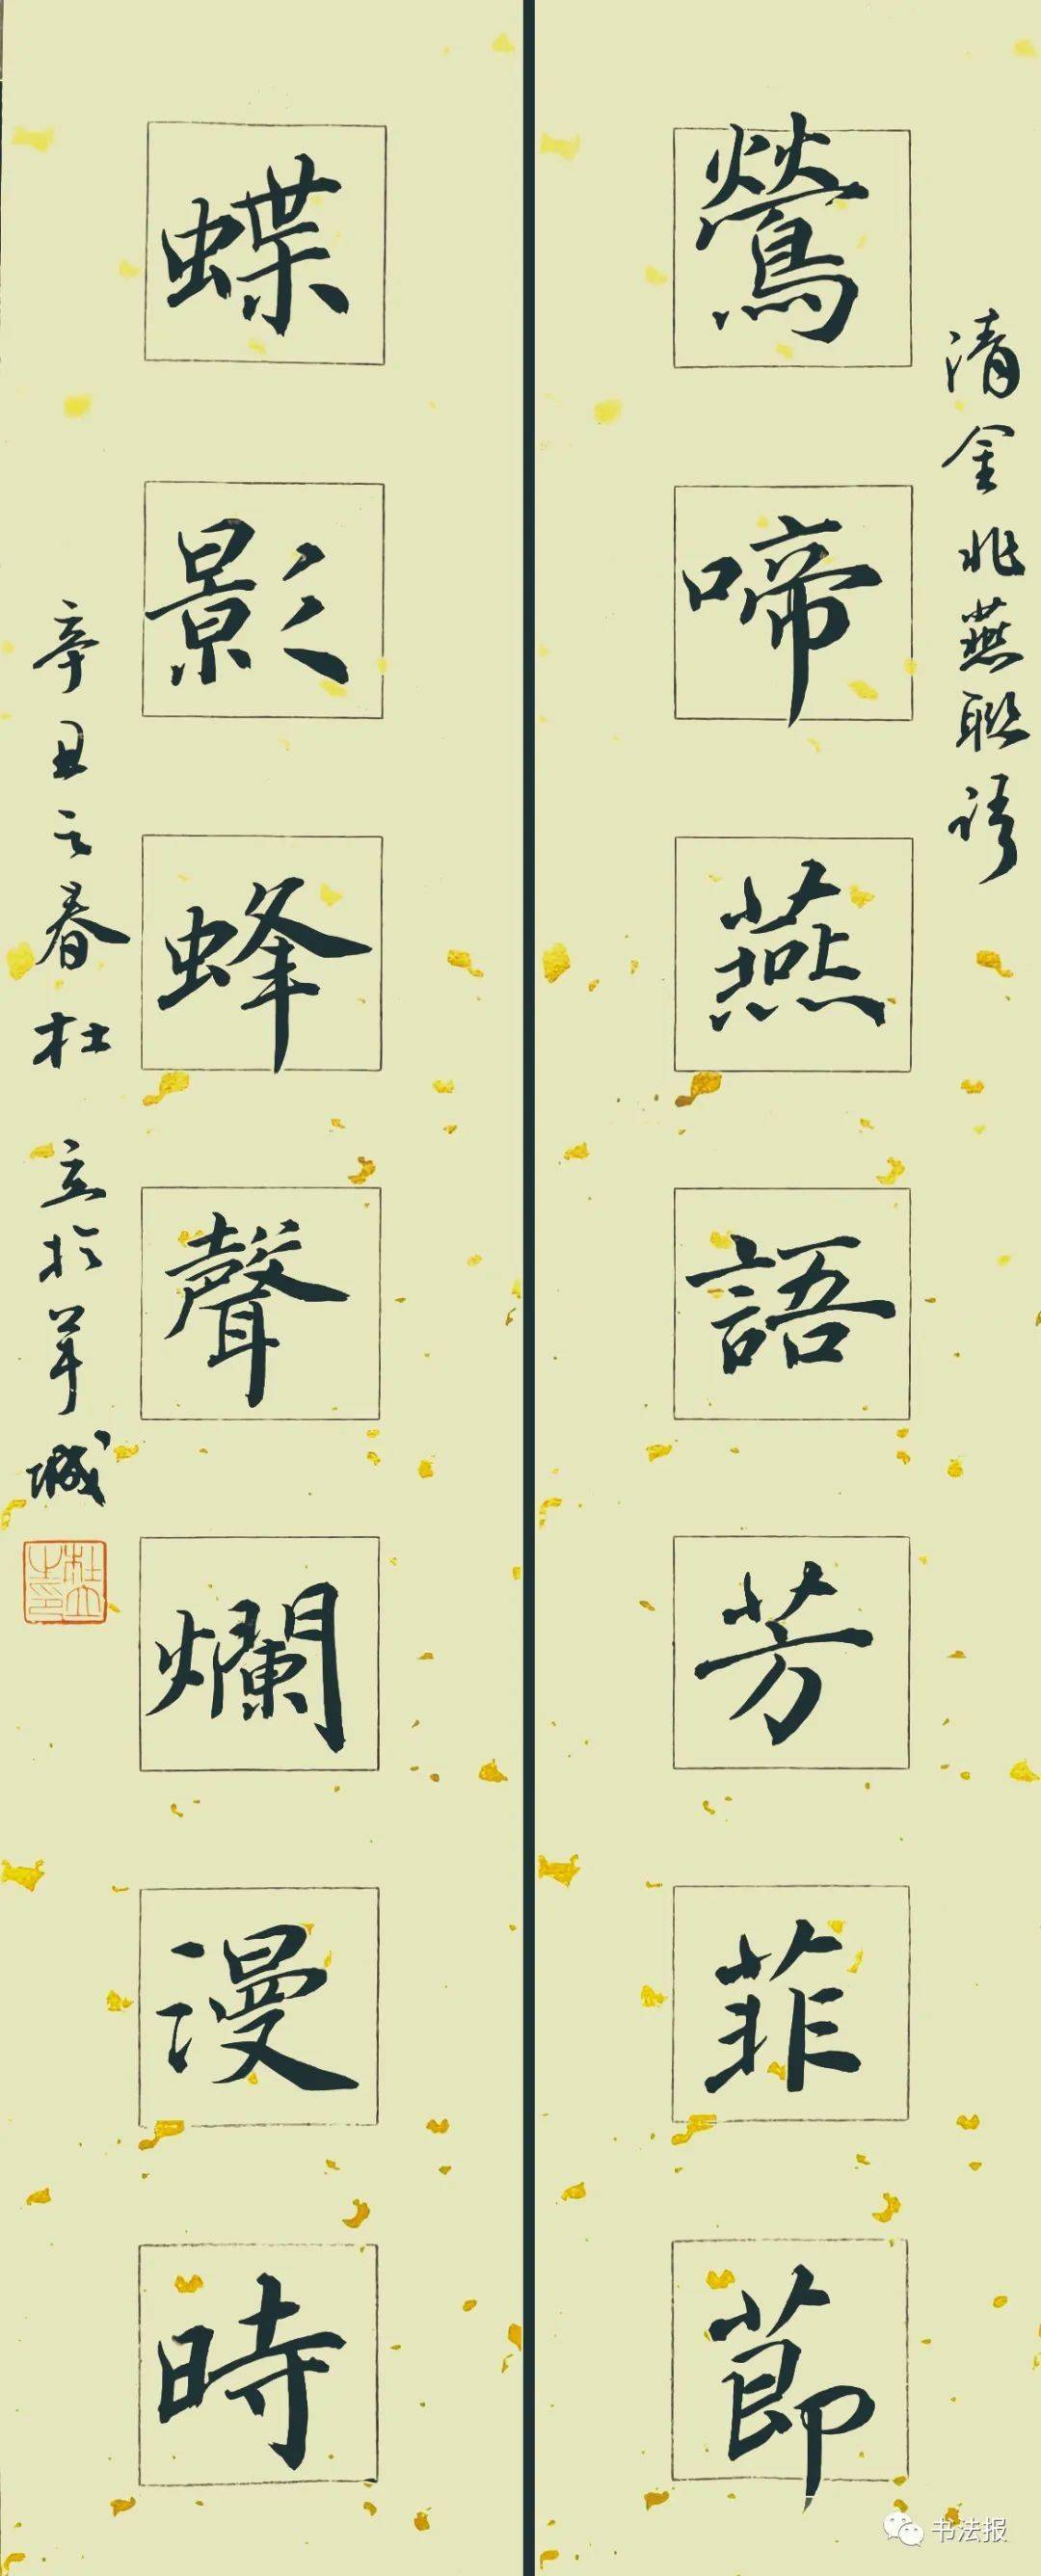 清金兆燕聯語
鶯啼燕語芳菲節
蝶影蜂聲爛漫時
辛丑之春杜立於羊城
杜立之印
书法报